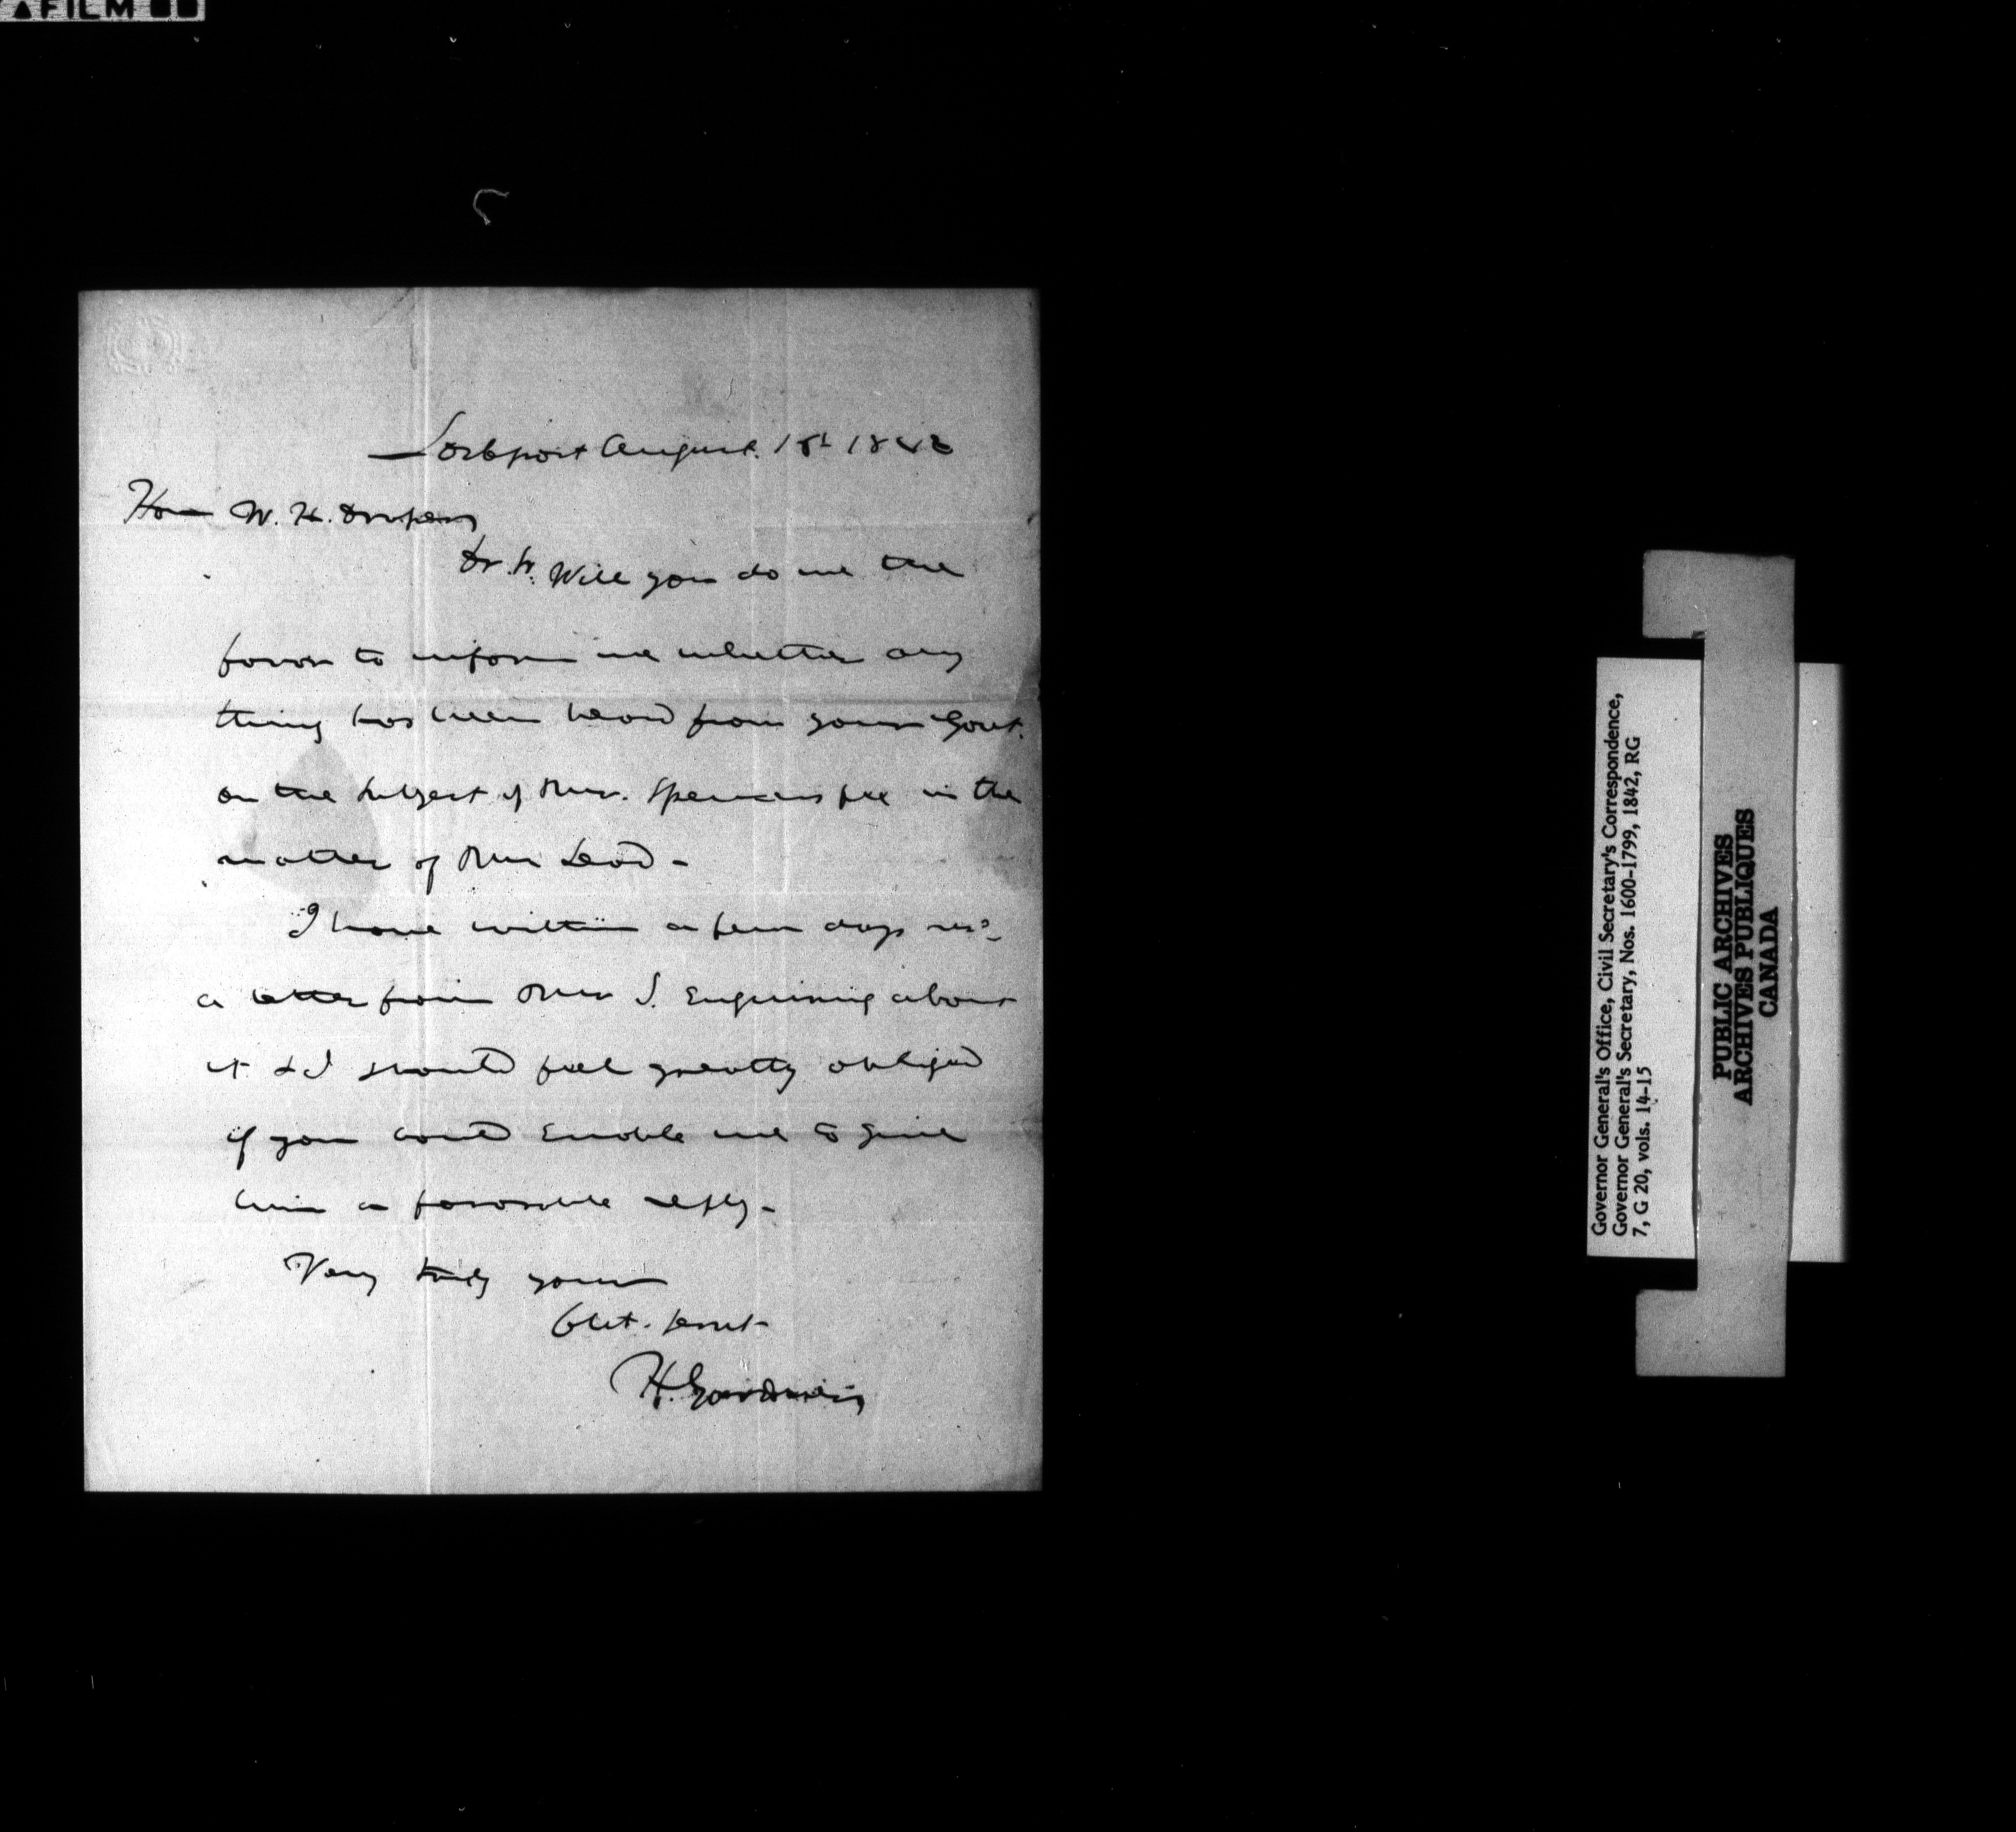 AFILM
Lockport August. 18t 1842
Hon W. H. Draper
Dr. Sr. Will you do me the
favor to inform me whether any
thing has been heard from your Govt.
on the subject of Mr. Spencers fee in the
matter of
I have within a few days recd
a letter from Mr S. Enquiring about
it & I should feel greatly obliged
if you could Enable me to give
him a favorable reply -
Very truly yours
Obt. Servt
H. Gardner
Governor General's Office, Civil Secretary's Correspondence,
Governor General's Secretary, Nos. 1600-1799, 1842, RG
7, G 20, vols. 14-15
PUBLIC ARCHIVES
ARCHIVES PUBLIQUES
CANADA